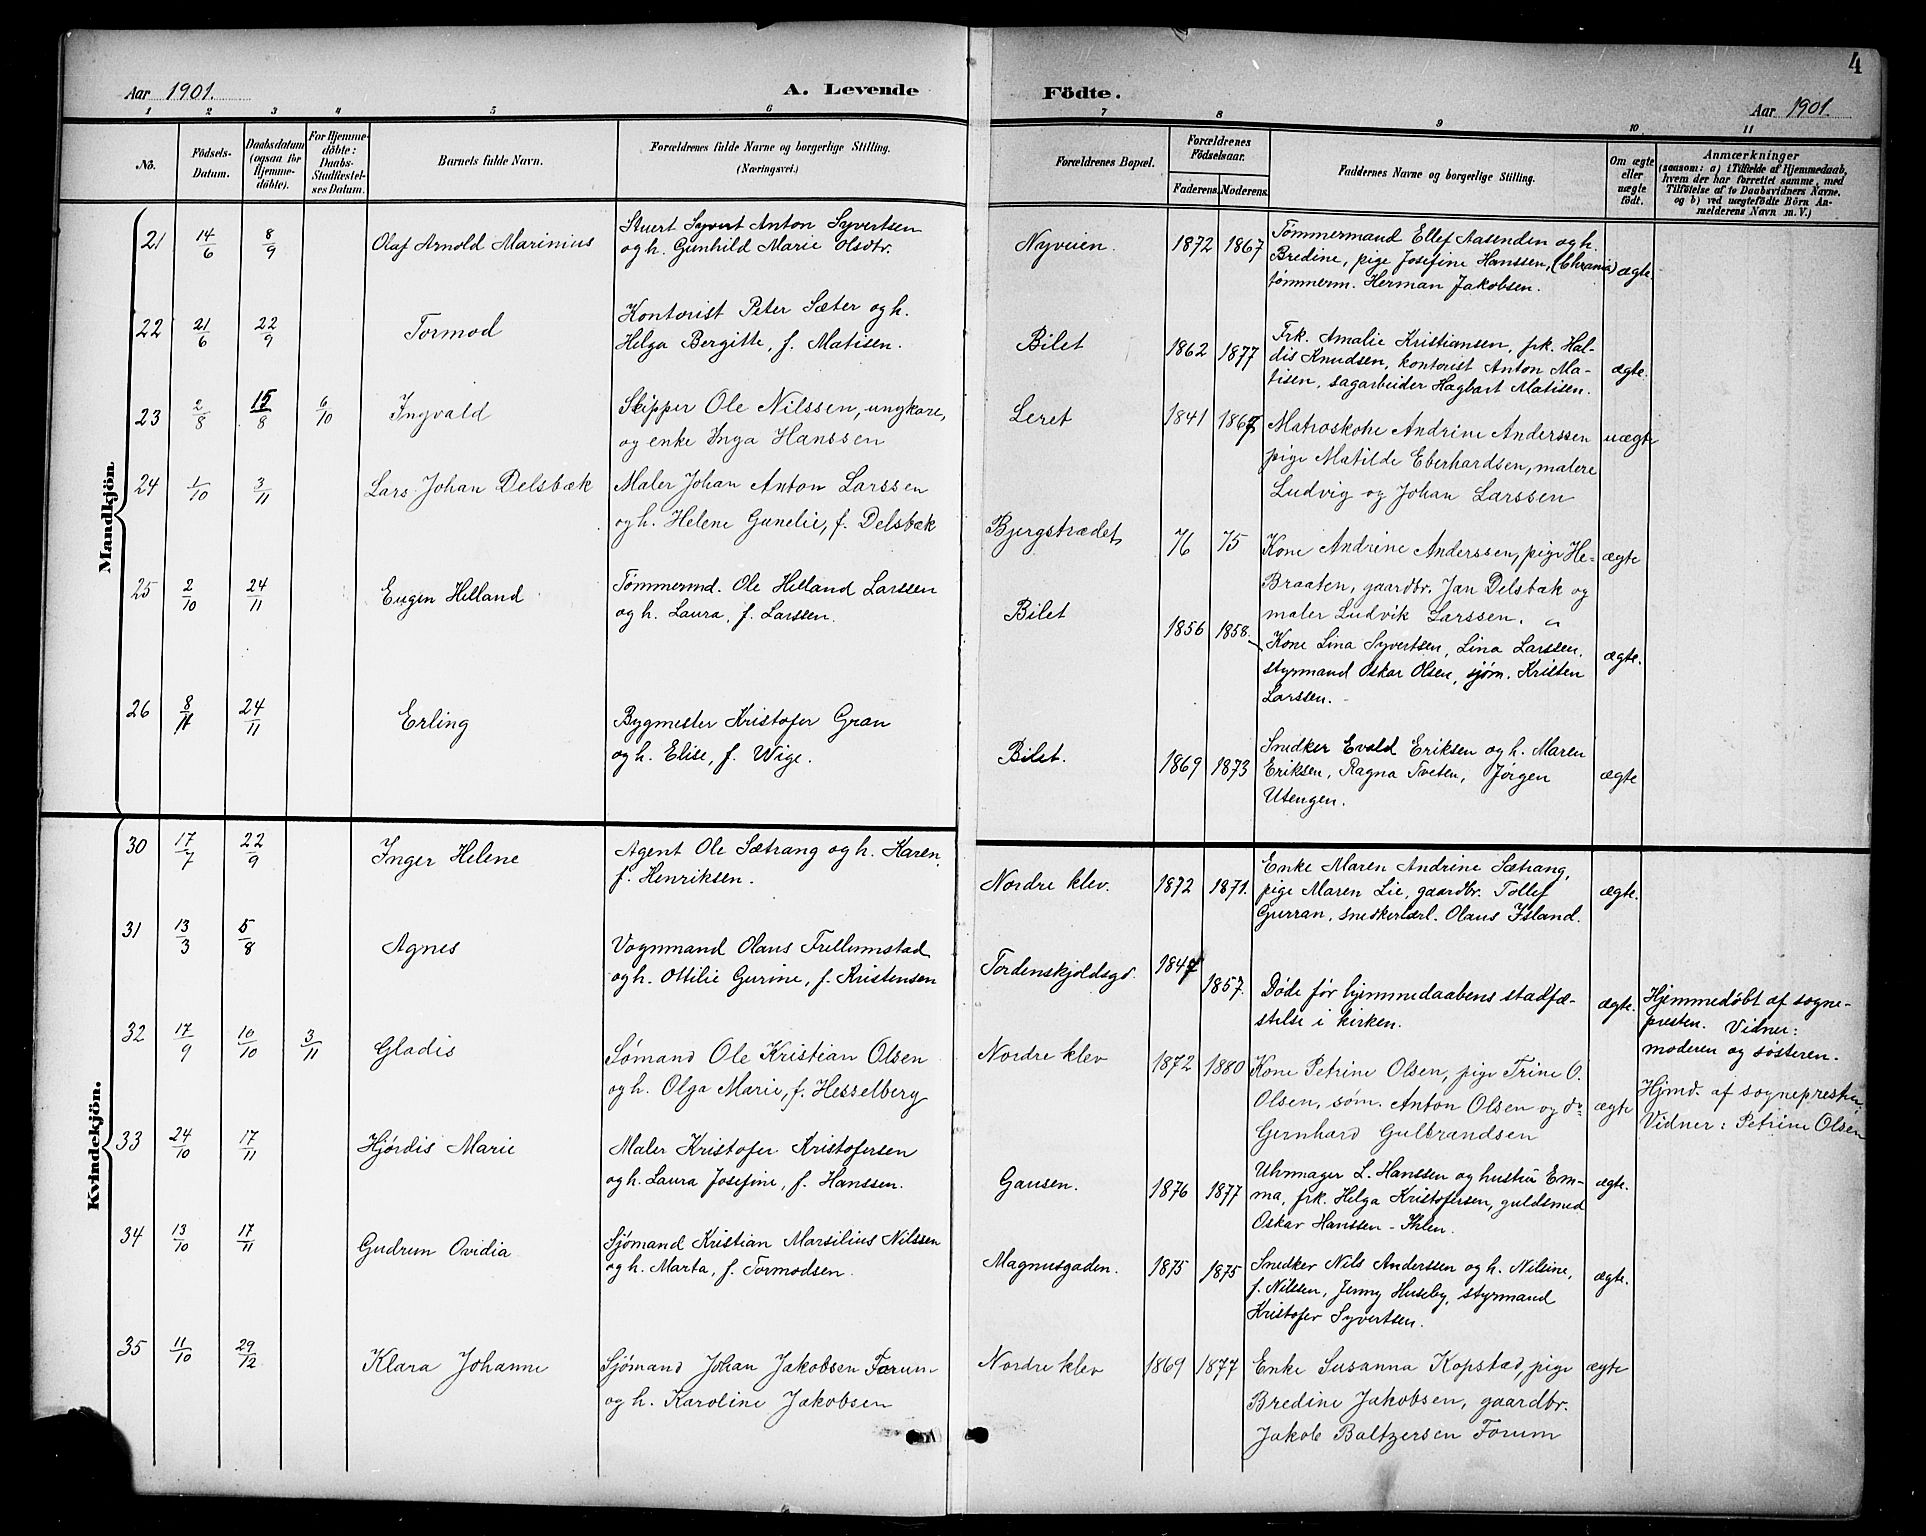 4
Aar 1901.
A. Levende
Födte.
Aar 1901.
1 2 3 4 5 6 7 8 9 10 11
No.
Födsels-Datum.
Daabsdatum (ogsaa for Hjemme-döbte).
For Hjemme-döbte: Daabs-Stadfæstel-ses Datum.
Barnets fulde Navn.
Forældrenes fulde Navne og borgerlige Stilling. (Næringsvei.)
Forældrenes Bopæl.
Forældrenes Födselsaar.
Faderens. Moderens.
Faddernes Navne og borgerlige Stilling.
Om ægte eller uægte født.
Anmærkninger
(saasom: a) i Tilfælde af Hjemmedaab, hvem der har forrettet samme, med Tilföielse af to Daabsvidners Navne. og b) ved uægtefödte Börn An-melderens Navn m. V.)
Mandkjön.
21 14/6 8/9 Olaf Arnold Marinius
Stuert Syvert Anton Syvertsen
og h. Gunhild Marie Olsdtr.
Nyveien. 1872 1867
Tømmermand Ellef Aasenden og h.
Bredine, pige Josefine Hanssen, (Chrania)
tømmerm. Herman Jakobsen.
ægte.
22 21/6 22/9 Tormod
Kontorist Peter Sæter og h.
Helga Bergitte, f. Matisen.
Bilet 1862 1877
Frk. Amalie Kristiansen, frk. Hal-
dis Knudsen, kontorist Anton Ma-
tisen, sagarbeider Hagbart Matisen.
ægte.
23 2/8 15/8 6/10 Ingvald
Skipper Ole Nilssen, ungkare,
og enke Inga Hanssen
Leret 1841 1867
Matroskone Andrine Anderssen
pige Matilde Eberhardsen, malere
Ludvig og Johan Larssen
uægte
24 1/10 3/11 Lars Johan Delsbæk
Maler Johan Anton Larssen
og h. Helene Gunelie, f. Delsbæk
Bjergstrædet 76 75
Kone Andrine Anderssen, pige He-
Braaten, gaardbr. Jan Delsbæk og
maler Ludvik Larssen.
ægte
25 2/10 24/11 Eugen Helland
Tømmermd. Ole Helland Larssen
og h. Laura, f. Larssen.
Bilet 1856 1858.
Kone Lina Syvertsen, Lina Larssen,
styrmand Oskar Olsen, sjøm. Kristen
Larssen.
ægte.
26 8/11 24/11 Erling
Bygmester Kristofer Gran
og h. Elise, f. Wige.
Bilet. 1869 1873
Snedker Evald Eriksen og h. Maren
Eriksen, Ragna Tveten, Jørgen
Utengen.
ægte
Kvindekjön.
30 17/7 22/9 Inger Helene
Agent Ole Sætrang og h. Karen,
f. Henriksen.
Nordre klev. 1872 1871.
Enke Maren Andrine Sætrang,
pige Maren Lie, gaardbr. Tollef
Gurran, snedkerlærl. Olaus Island.
ægte.
31 13/3 5/8 Agnes
Vognmand Olaus Frellumstad
og h. Ottilie Gurine, f. Kristensen
Tordenskjoldsgd. 1847 1857.
Døde før hjemmedaabens stadfæ-
stelse i kirken.
ægte.
Hjemmedøbt af sogne-
presten. Vidner:
moderen og søsteren.
32 17/9 10/10 3/11 Gladis
Sømand Ole Kristian Olsen
og h. Olga Marie, f. Hesselberg
Nordre klev 1872 1880
Kone Petrine Olsen, pige Trine O.
Olsen, søm. Anton Olsen og do
Gernhard Gulbrandsen
ægte
Hjmd. af sognepresten
Vidner: Petrine Olsen
33 24/10 17/11 Hjørdis Marie
Maler Kristofer Kristofersen
og h. Laura Josefine, f. Hanssen.
Gausen. 1876 1877
Uhrmager L. Hanssen og hustru Em-
ma, frk. Helga Kristofersen, guldsmed
Oskar Hanssen-Ihlen.
ægte.
34 13/10 17/11 Gudrun Ovidia
Sjømand Kristian Marsilius Nilssen
og h. Marta, f. Tormodsen.
Magnusgaden. 1875 1875
Snedker Nils Anderssen og h. Nilsine,
f. Nilssen, Jenny Huseby, styrmand
Kristofer Syvertsen.
ægte.
35 11/10 29/12 Klara Johanne
Sjømand Johan Jakobsen Forum
og h. Karoline Jakobsen
Nordre klev 1869 1877
Enke Susanna Kopstad, pige
Bredine Jakobsen, gaardbr.
Jakob Baltzersen Forum
ægte